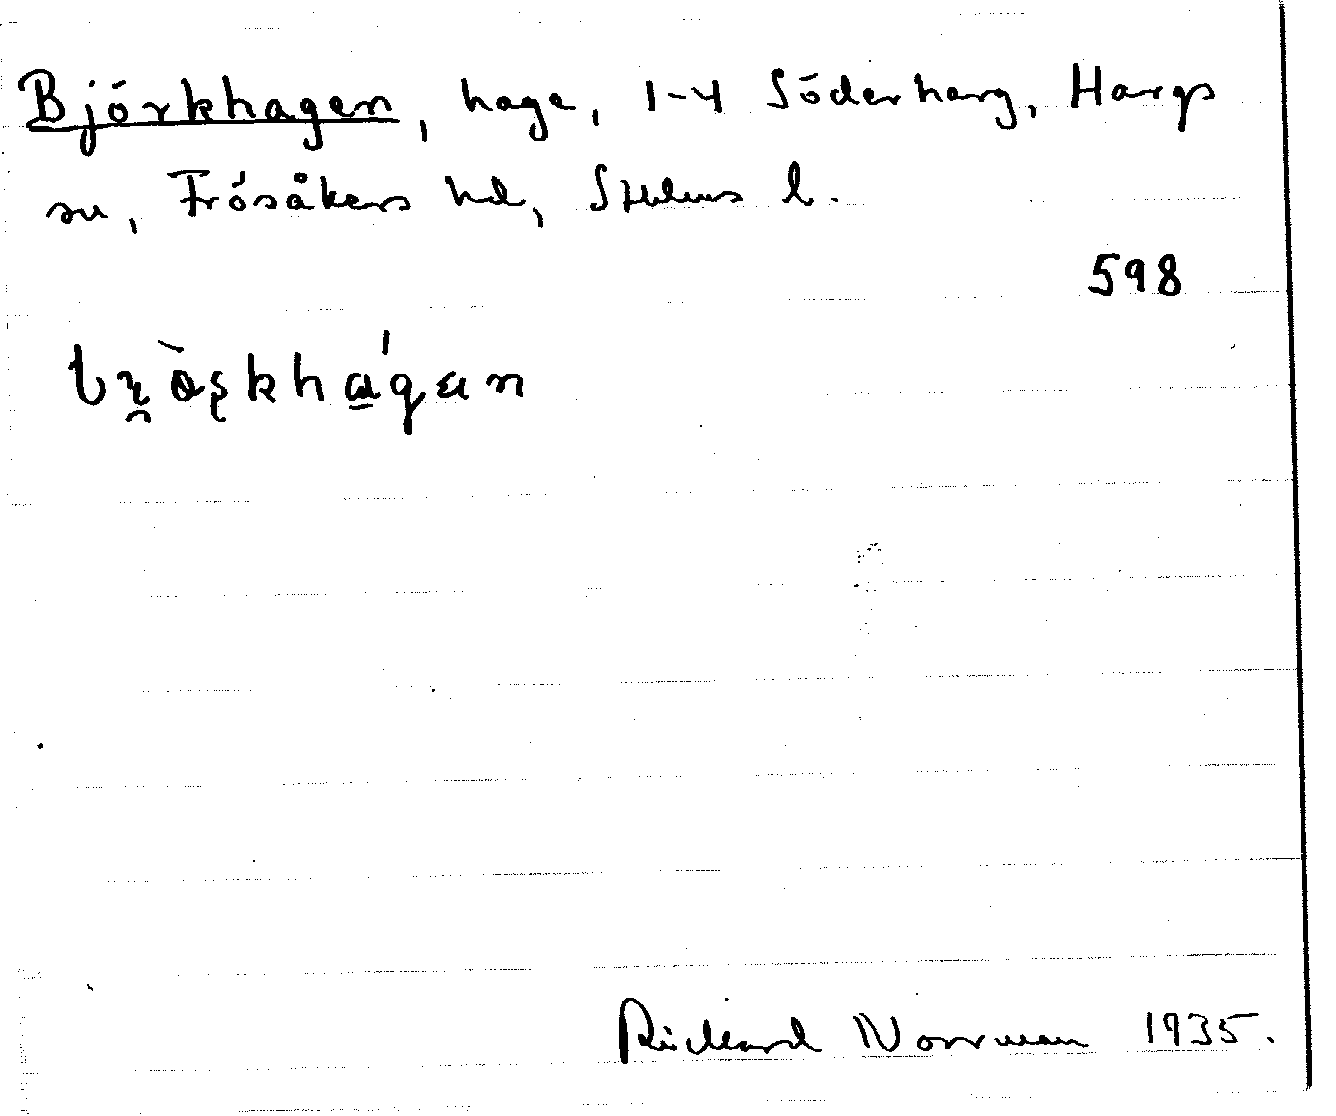 Björkhagen, hage, 1-4 Söderharg, Hargs
sn, Frösåkers hd, Sthlms l.
598
Rickard Norrman 1935.